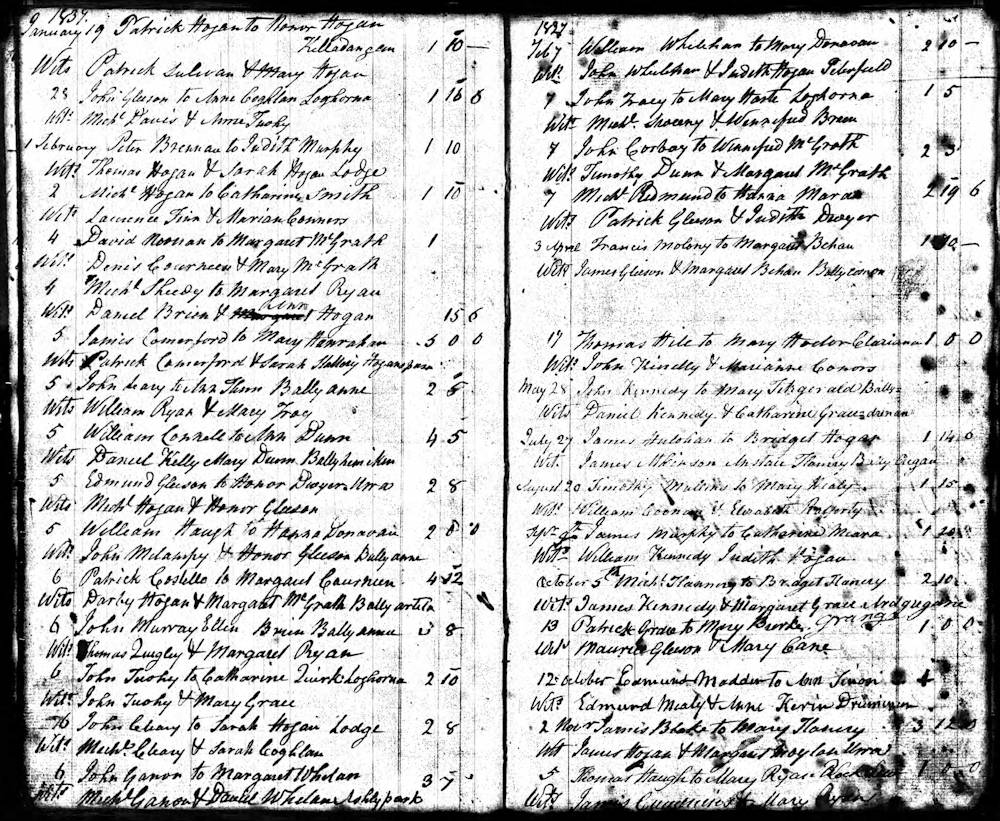 1837.
January 19 Patrick Hogan to Honor Hogan
Killadangan 1 10 —
Wits Patrick Sulivan & Mary Hogan
28 John Gleeson to Anne Coghlan Loghorna 1 16 6
Wits Michl Davis & Anne Tuohy
1 February Peter Brennan to Judith Murphy 1 10
Wits Thomas Hogan & Sarah Hogan Lodge
2 Michl Hogan to Catharine Smith 1 10
Wits Laurence Finn & Marian Conners
4 David Noonan to Margaret McGrath 1
Wits Denis Courneen & Mary McGrath
4 Michl Sheedy to Margaret Ryan
Wits Daniel Brien & Ann Hogan 15 6
5 James Comerford to Mary Hanrahan 5 0 0
Wits Patrick Comerford & Sarah Slattery
5 John Leary to Ann Finn Ballyanne 2 5
Wits William Ryan & Mary Troy
5 William Connell to Ann Dunn 4 5
Wits Daniel Kelly Mary Dunn
5 Edmund Gleeson to Honor Dwyer Urra 2 8
Wits Michl Hogan & Honor Gleeson
5 William Haugh to Hanna Donovan 2 8 0
Wits John Mlampy & Honor Gleeson Ballyanne
6 Patrick Costello to Margaret Courneen 4 12
Wits Darby Hogan & Margaret McGrath Ballyartela
6 John Murray Ellen Brien Ballyannee 8
Wits Thomas Quigley & Margaret Ryan
6 John Tuohy to Catharine Quirk Loghorna 2 10
Wits John Tuohy & Mary Grace
6 John Cleary to Sarah Hogan Lodge 2 8
Wits Michl Cleary & Sarah Coghlan
6 John Ganon to Margaret Whelan 3 7
Wits Michl Ganon & Daniel Whelan Ashlypark
1837
Feb 7 William Whelehan to Mary Donovan 2 10 —
Wits John Whelehan & Judith Hogan Peterfield
7 John Tracy to Mary Harte Loghorna 1 5
Wits Michl Shoeeny & Winnefred Brien
7 John Corboy to Winnefred McGrath 2 3
Wits Timothy Dunn & Margaret McGrath
7 Michl Redmund to Hanna Maran 2 19 6
Wits Patrick Gleeson & Judith Dwyer
3 April Francis Molony to Margaret Behan 1 10 —
Wits James Gleeson & Margaret Behan
17 Thomas Hile to Mary Hoctor Clariana 1 0 0
Wits John Kinelly & Marianne Conors
May 28 John Kennedy to Mary Fitzgerald
Wits Daniel Kennedy & Catharine Grace
July 27 James Hulohan to Bridget Hogan 1 14 0
Wits James Atkinson Anstace Flanery
August 20 Timothy Mullins to Mary Healy 1 15
Wits William Coonan & Elizabeth Hogerty
James Murphy to Catharine Meara 1 10
Wits William Kennedy Judith Hogan
October 5th Michl Flannery to Bridget Flanery 2 10
Wits James Kennedy & Margaret Grace
13 Patrick Grace to Mary Burke Grange 1 0 0
Wits Maurice Gleeson & Mary Cane
12 October Edmund Madden to Ann
Wits Edmund Mealy & Anne Kevin
2 Novr James Blake to Mary Flanery 3 12 0
Wits James Hogan & Margaret Urra
5 Thomas Haugh to Mary Ryan 1 0 0
Wits James to Mary Ryan